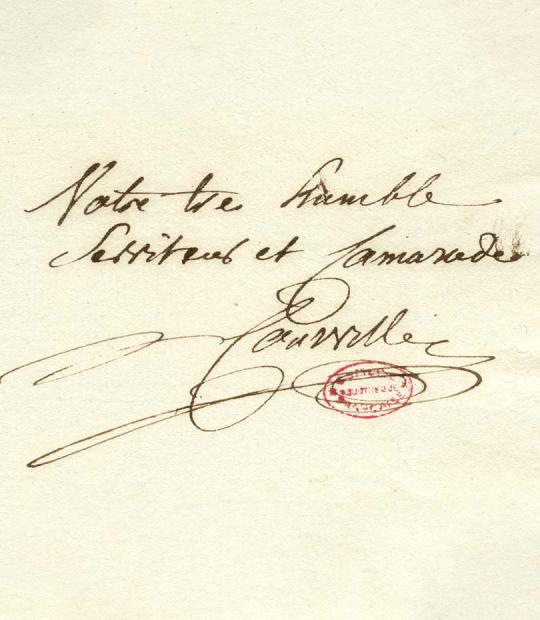 Votre tres humble
Serviteur et Camarade
Courville